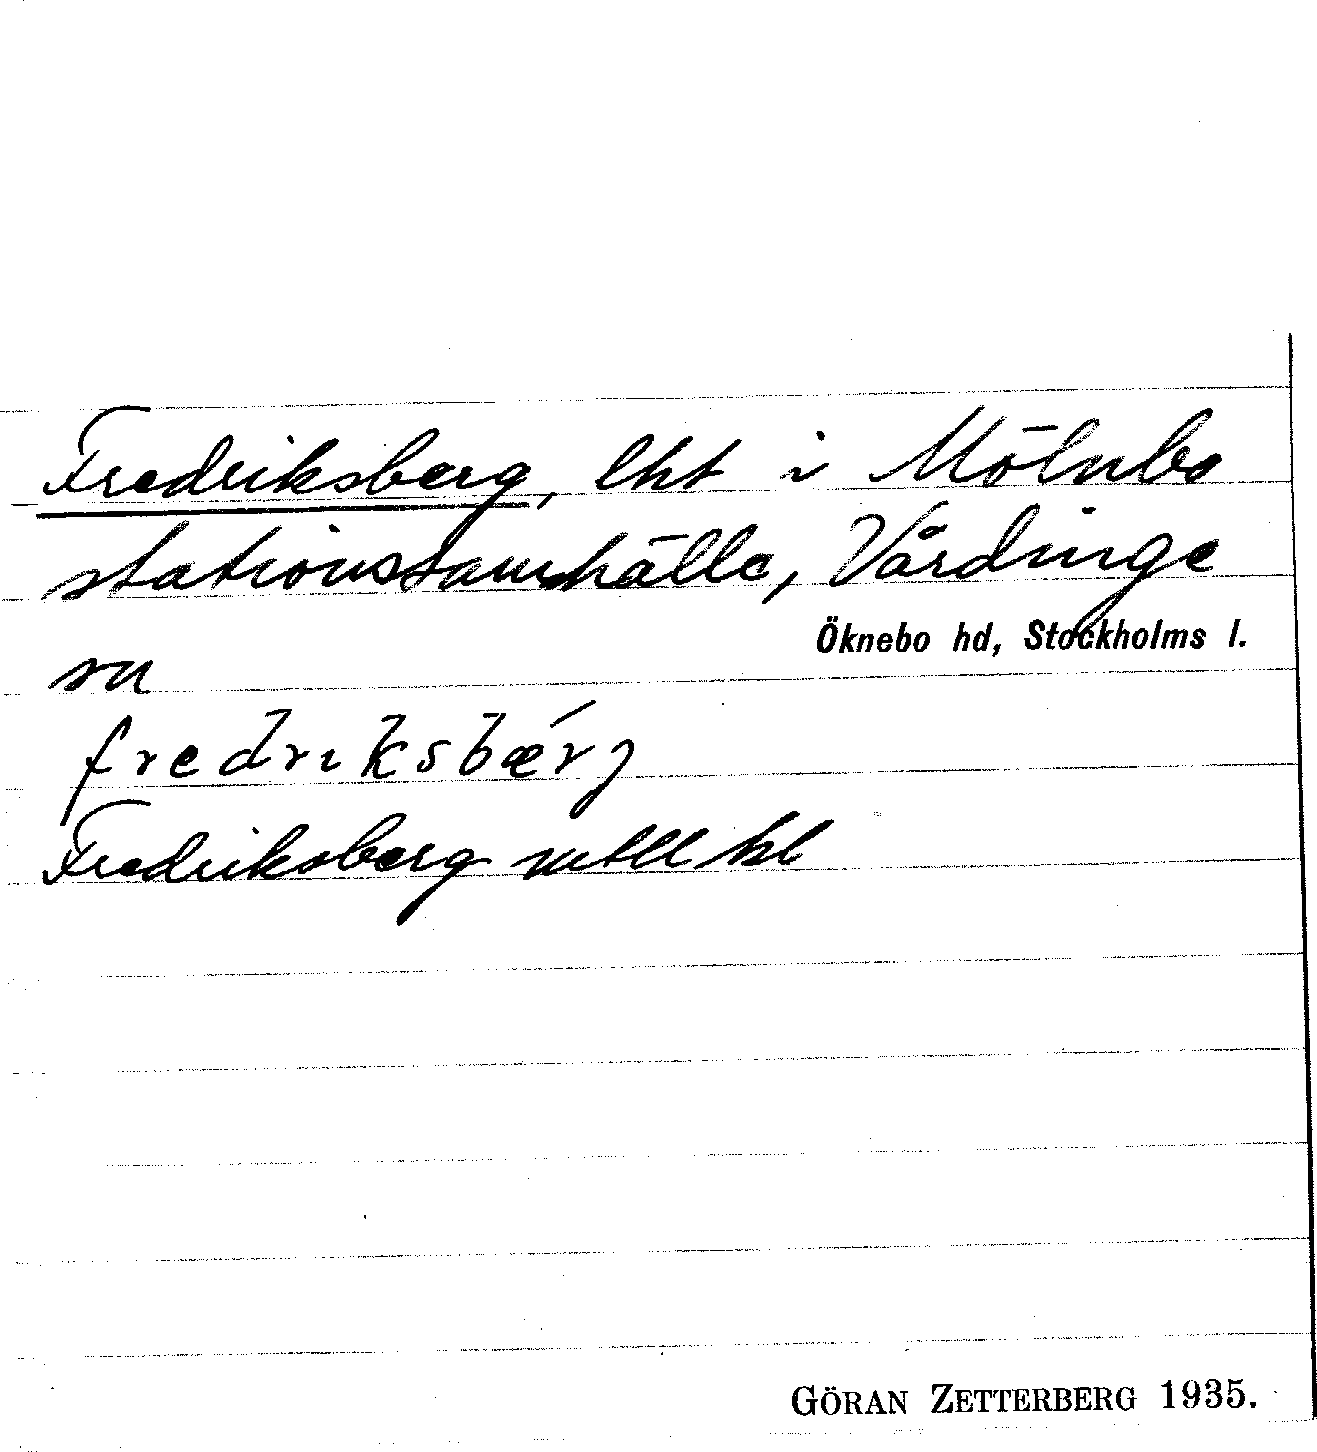 Fredriksberg, lht i Mölnbo
stationssamhälle, Vårdinge
Öknebo hd, Stockholms l.
sn
fredriksbǽrj
Fredriksberg mtll kl
GÖRAN ZETTERBERG 1935.